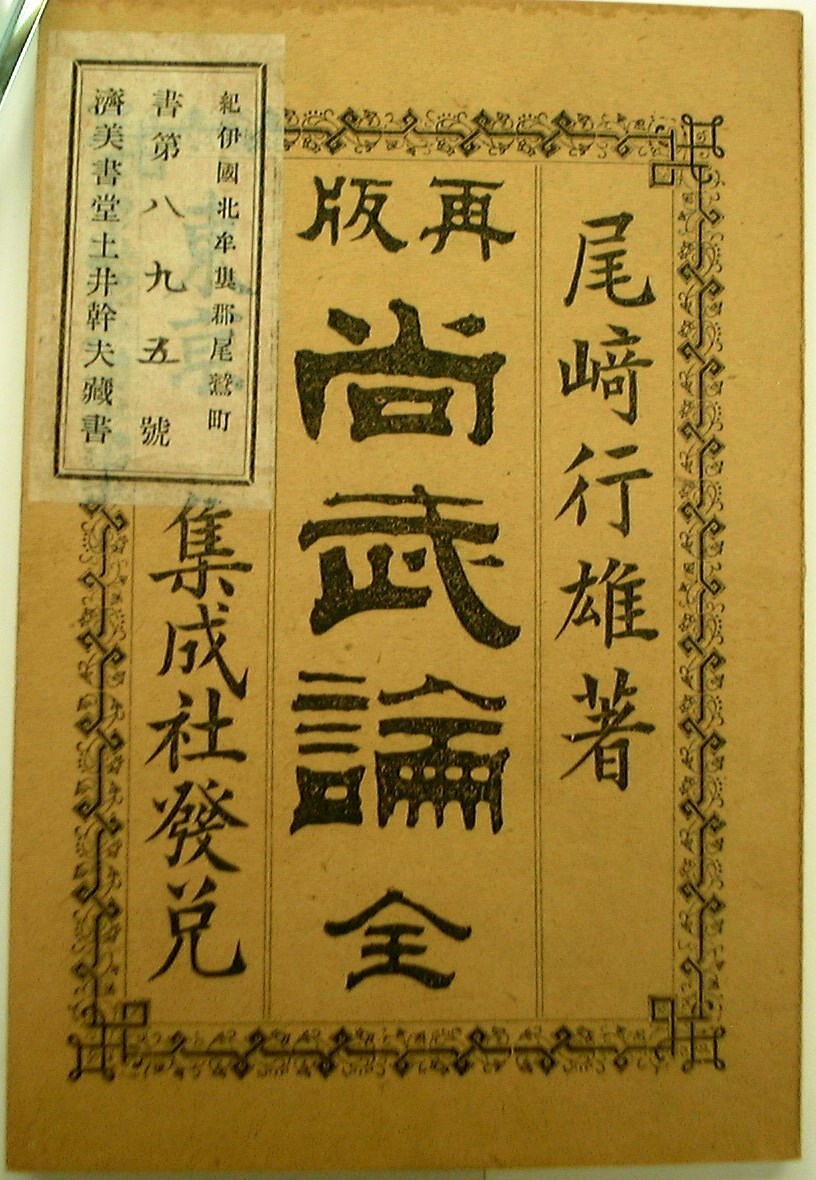 尾﨑行雄著
再版
尚武論 全
東京 集成社發兌
紀伊國北牟婁郡尾鷲町
書第八九五號
濟美書堂土井幹夫藏書